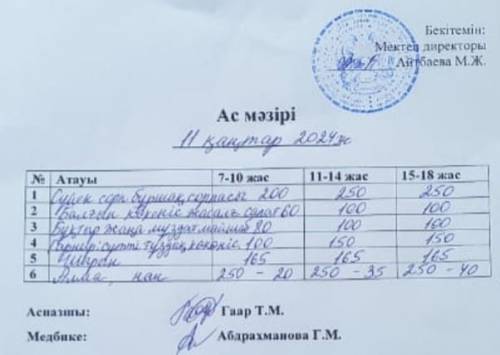 Бекітемін:
Мектеп директоры
Айтбаева М.Ж.
Ас мәзірі
11 қаңтар 2024ж
№ Атауы 7-10 жас 11-14 жас 15-18 жас
1 Сүйек сорпа бұршақ сорпасы 200 250 250
2 көкөніс салат 60 100 100
3 80 100 100
4 Гарнир: сүтті тұздық көкөніс 100 150 150
5 165 165 165
6 Алма, нан 250 - 20 250 - 35 250 - 40
Аспазшы: Гаар Т.М.
Медбике: Абдрахманова Г.М.